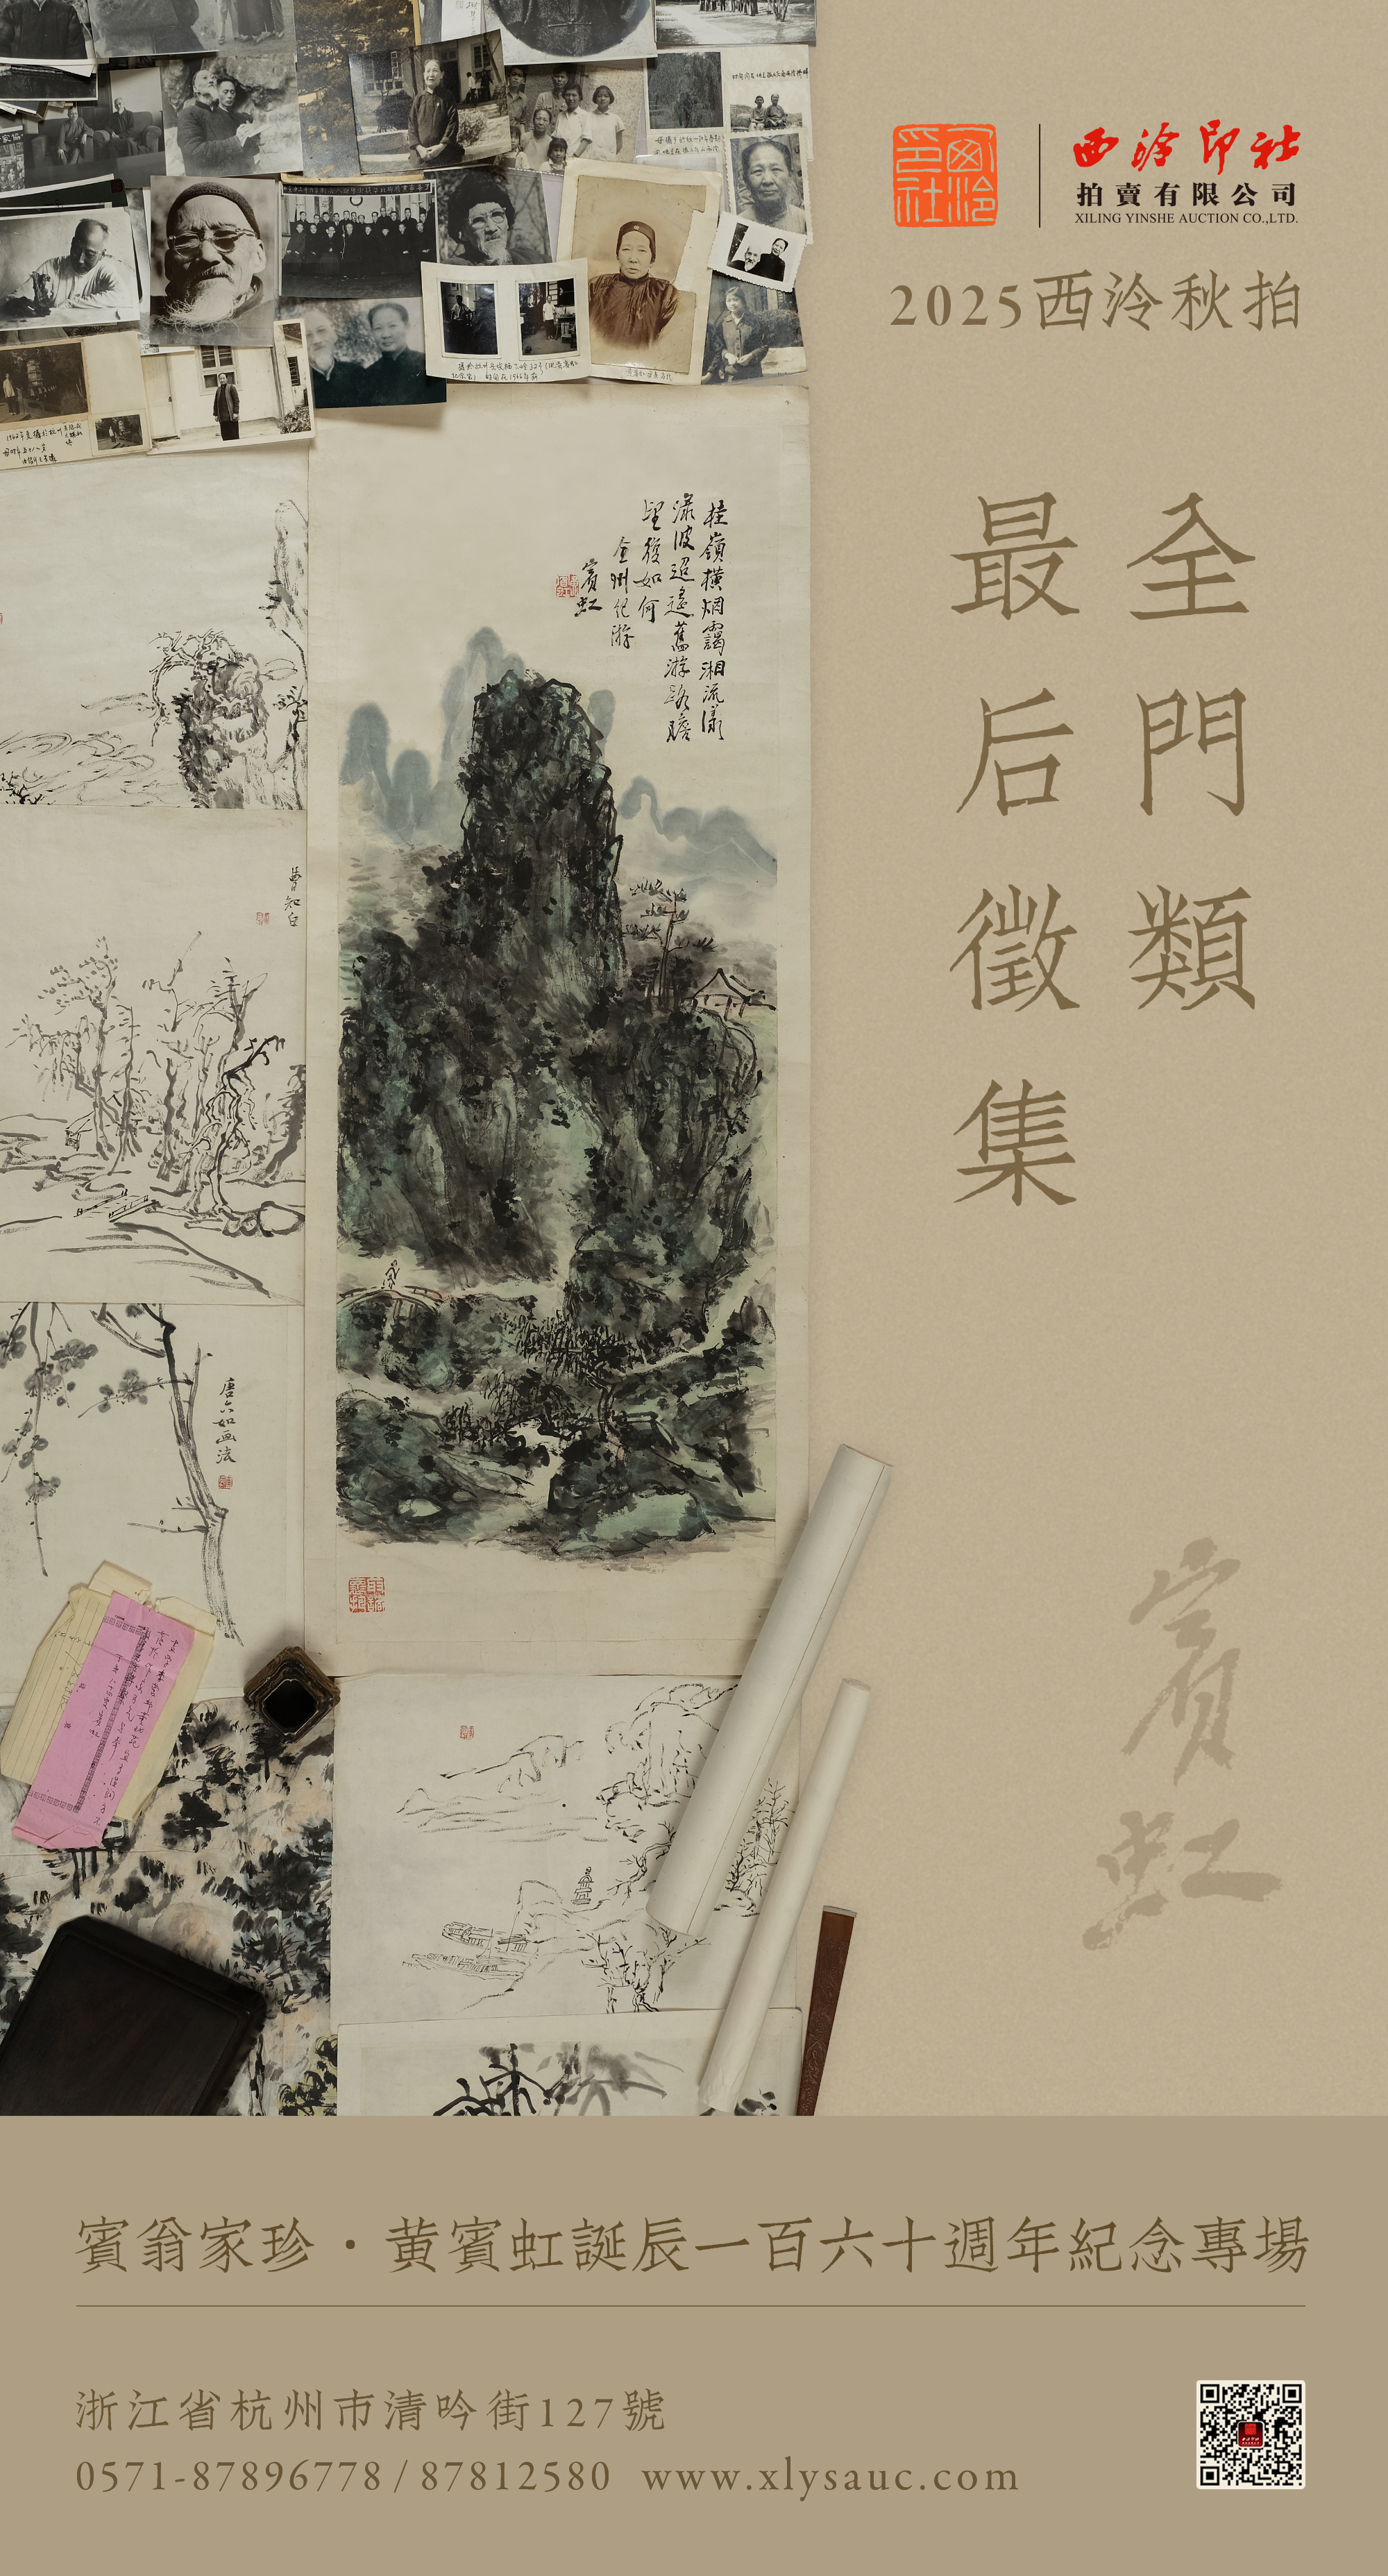 西泠印社
西泠印社
拍賣有限公司
XILING YINSHE AUCTION CO.,LTD.
2025西泠秋拍
全門類
最后徵集
桂嶺橫烟靄湘流漾
淥波迢遙舊游路瞻
望復如何
全州紀游
賓虹
曹知白
唐六如画法
賓虹
賓翁家珍·黄賓虹誕辰一百六十週年紀念專場
浙江省杭州市清吟街127號
0571-87896778/87812580 www.xlysauc.com